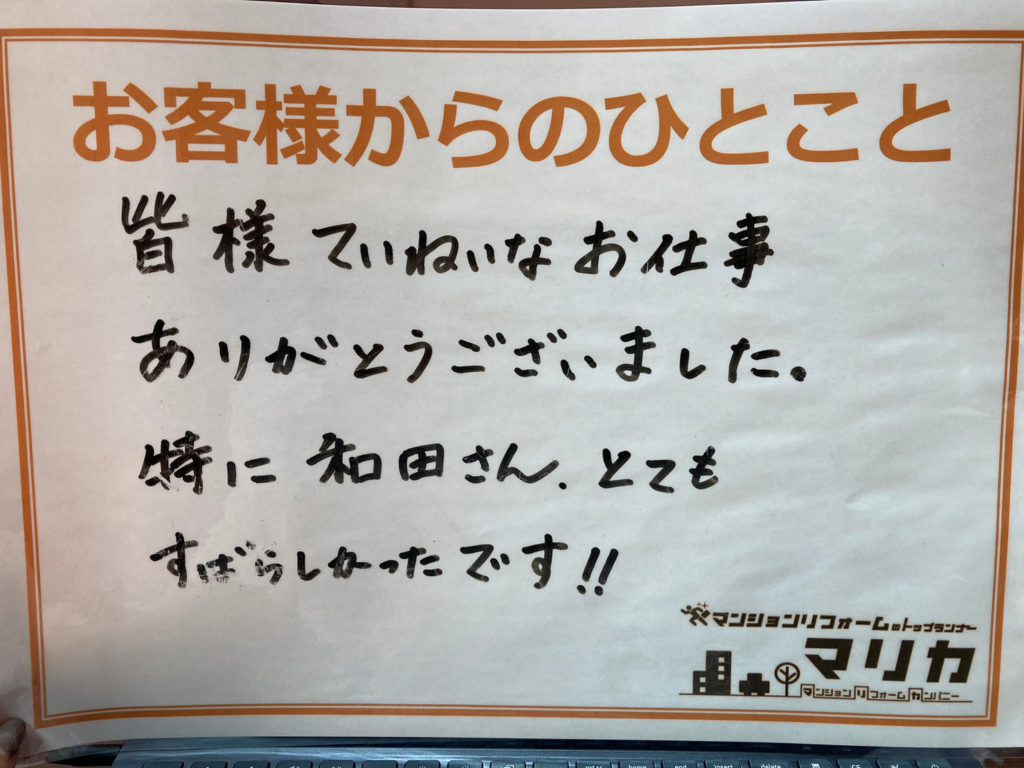 お客様からのひとこと
皆様ていねいなお仕事
ありがとうございました。
特に和田さん、とても
すばらしかったです!!
マンションリフォームのトップランナー
マリカ
マンションリフォームカンパニー
home
end
insert
delete